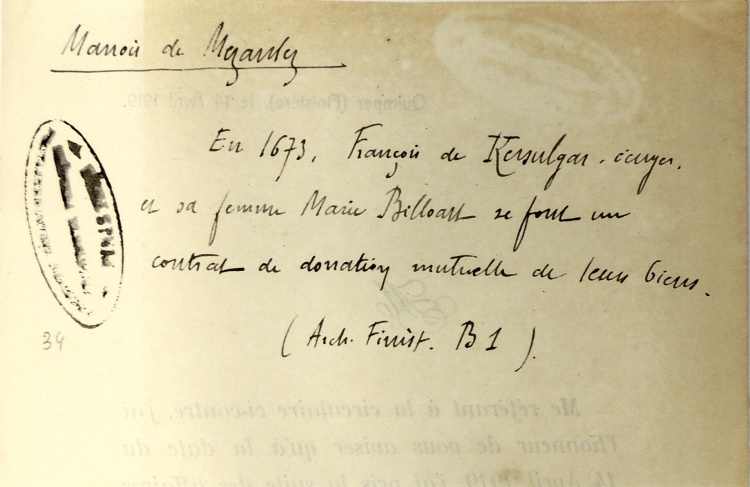 Manoir de Mezanlez
En 1673, François de Kersulgar, écuyer,
et sa femme Marie Billoart se font un
contrat de donation mutuelle de leurs biens.
(Arch. Finist. B 1).
34
Quimper (Finistère), le 14 Avril 1919.
Me référant à la circulaire ci-contre, j'ai
l'honneur de vous aviser qu'à la date du
14 Avril 1919, j'ai pris la suite des affaires